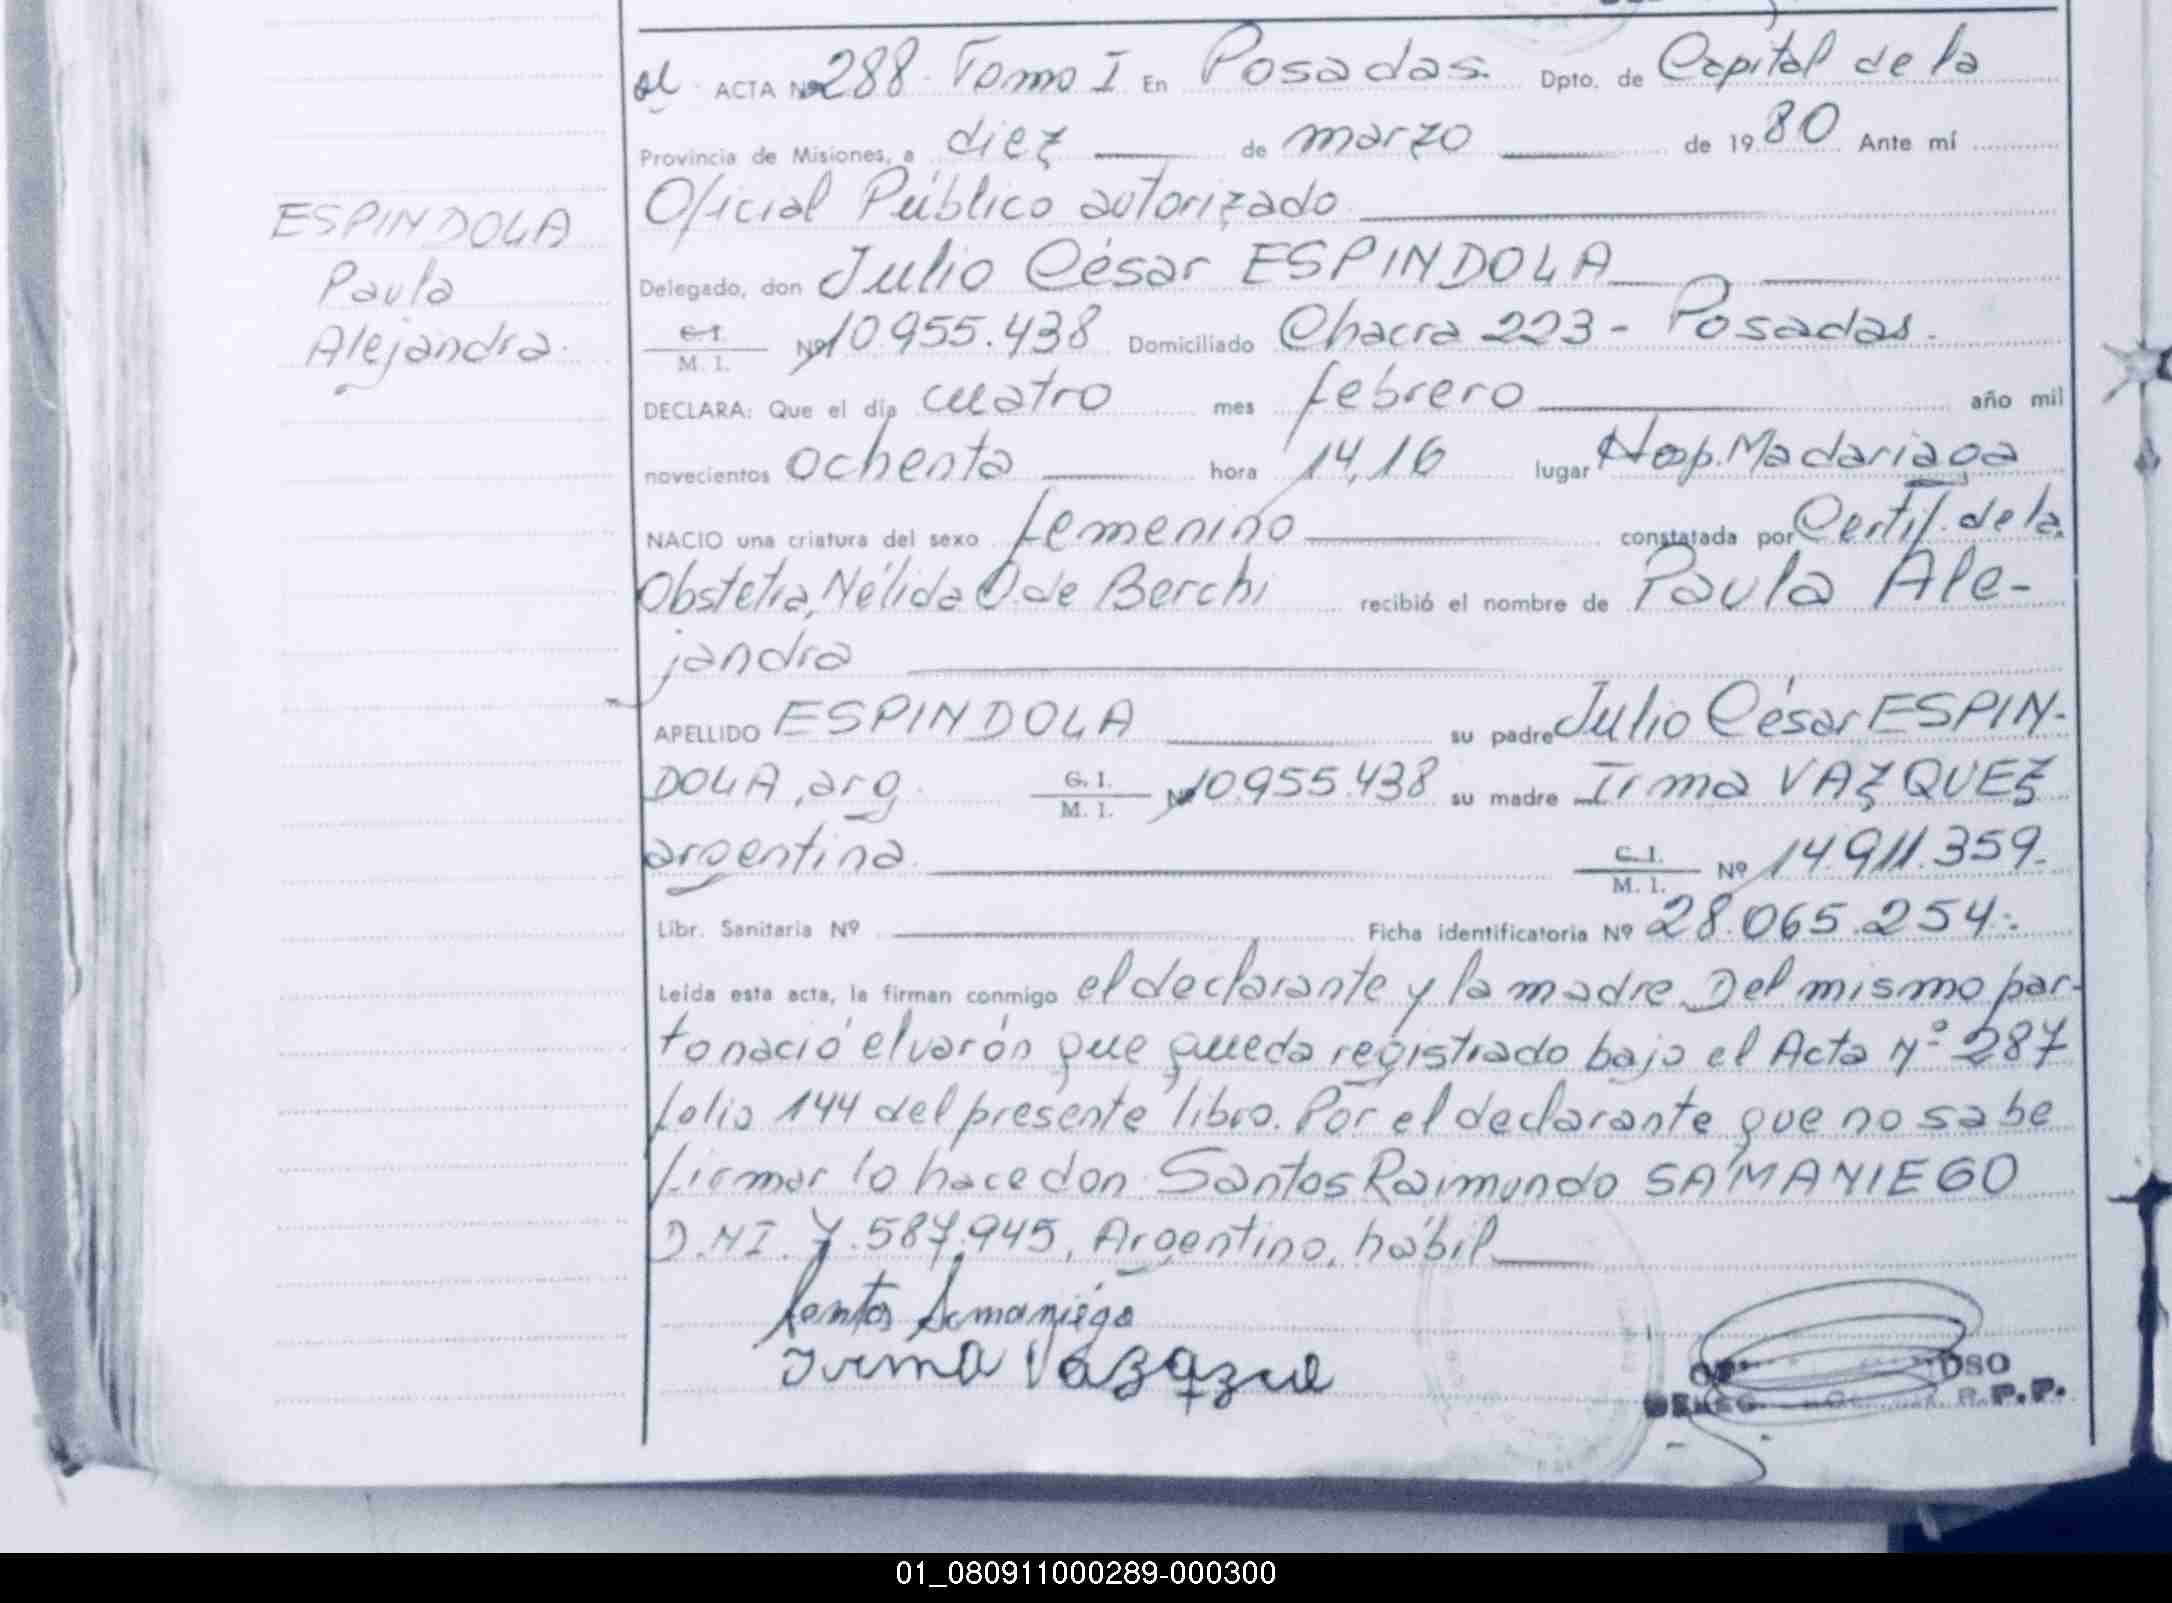 al ACTA Nº 288 Tomo I En Posadas. Dpto. de Capital de la
Provincia de Misiones, a diez de marzo de 1980 Ante mí
Oficial Público autorizado
Delegado, don Julio César ESPINDOLA
C.I. M. I. Nº 10.955.438 Domiciliado Chacra 223 - Posadas.
DECLARA: Que el día cuatro mes febrero año mil
novecientos ochenta hora 14,16 lugar Hosp. Madariaga
NACIO una criatura del sexo femenino constatada por Certif. de la
Obstetra, Nélida O. de Berchi recibió el nombre de Paula Ale-
jandra
APELLIDO ESPINDOLA su padre Julio César ESPIN-
DOLA, arg. C. I. M. I. Nº 10.955.438 su madre Irma VAZQUEZ
argentina C. I. M. I. Nº 14.911.359.-
Libr. Sanitaria Nº Ficha identificatoria Nº 28.065.254.-
Leída esta acta, la firman conmigo el declarante y la madre. Del mismo par-
to nació el varón que queda registrado bajo el Acta Nº 287
folio 144 del presente libro. Por el declarante que no sabe
firmar lo hace don Santos Raimundo SAMANIEGO
D.N.I. 7.587.945, Argentino, hábil
Santos Samaniego
Irma Vazqzue
OSO
R.P.P.
ESPINDOLA
Paula
Alejandra.
01_080911000289-000300